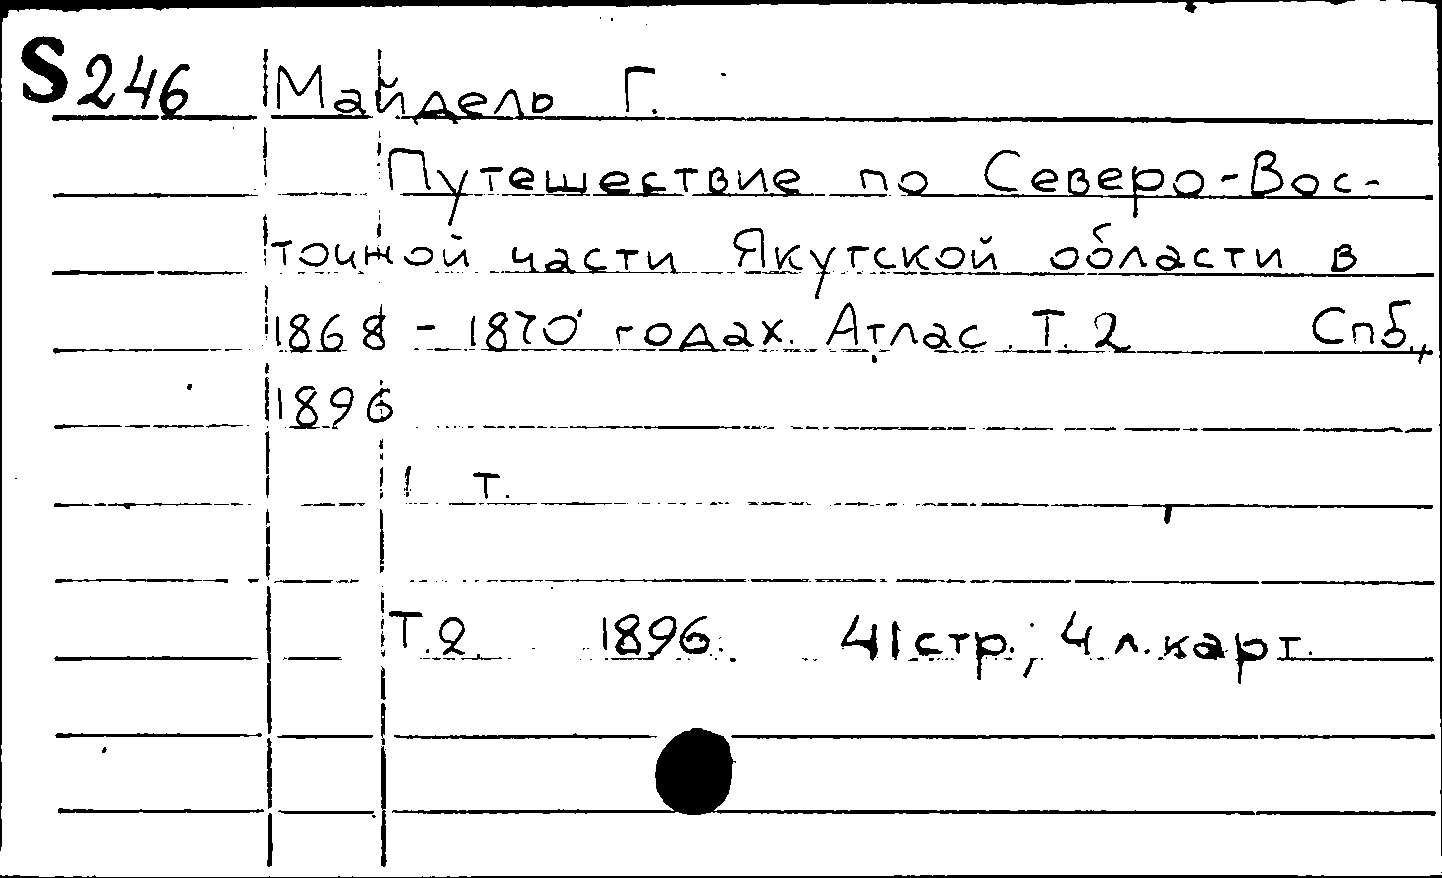 S 246 Майдель Г.
Путешествие по Северо-Вос-
точной части Якутской области в
1868 - 1870 годах. Атлас. Т. 2 Спб.,
1896
1 т.
Т.2. 1896. 41 стр.; 4 л. карт.